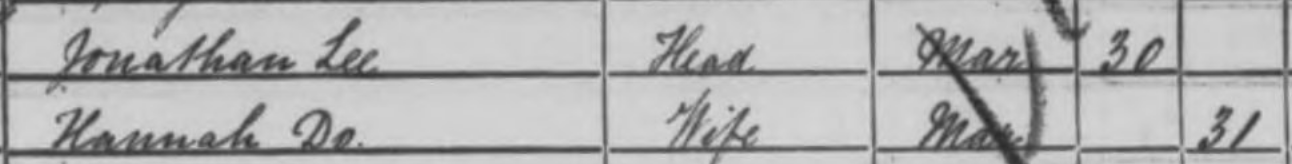 Jonathan Lee Head Mar 30
Hannah Do. Wife Mar 31